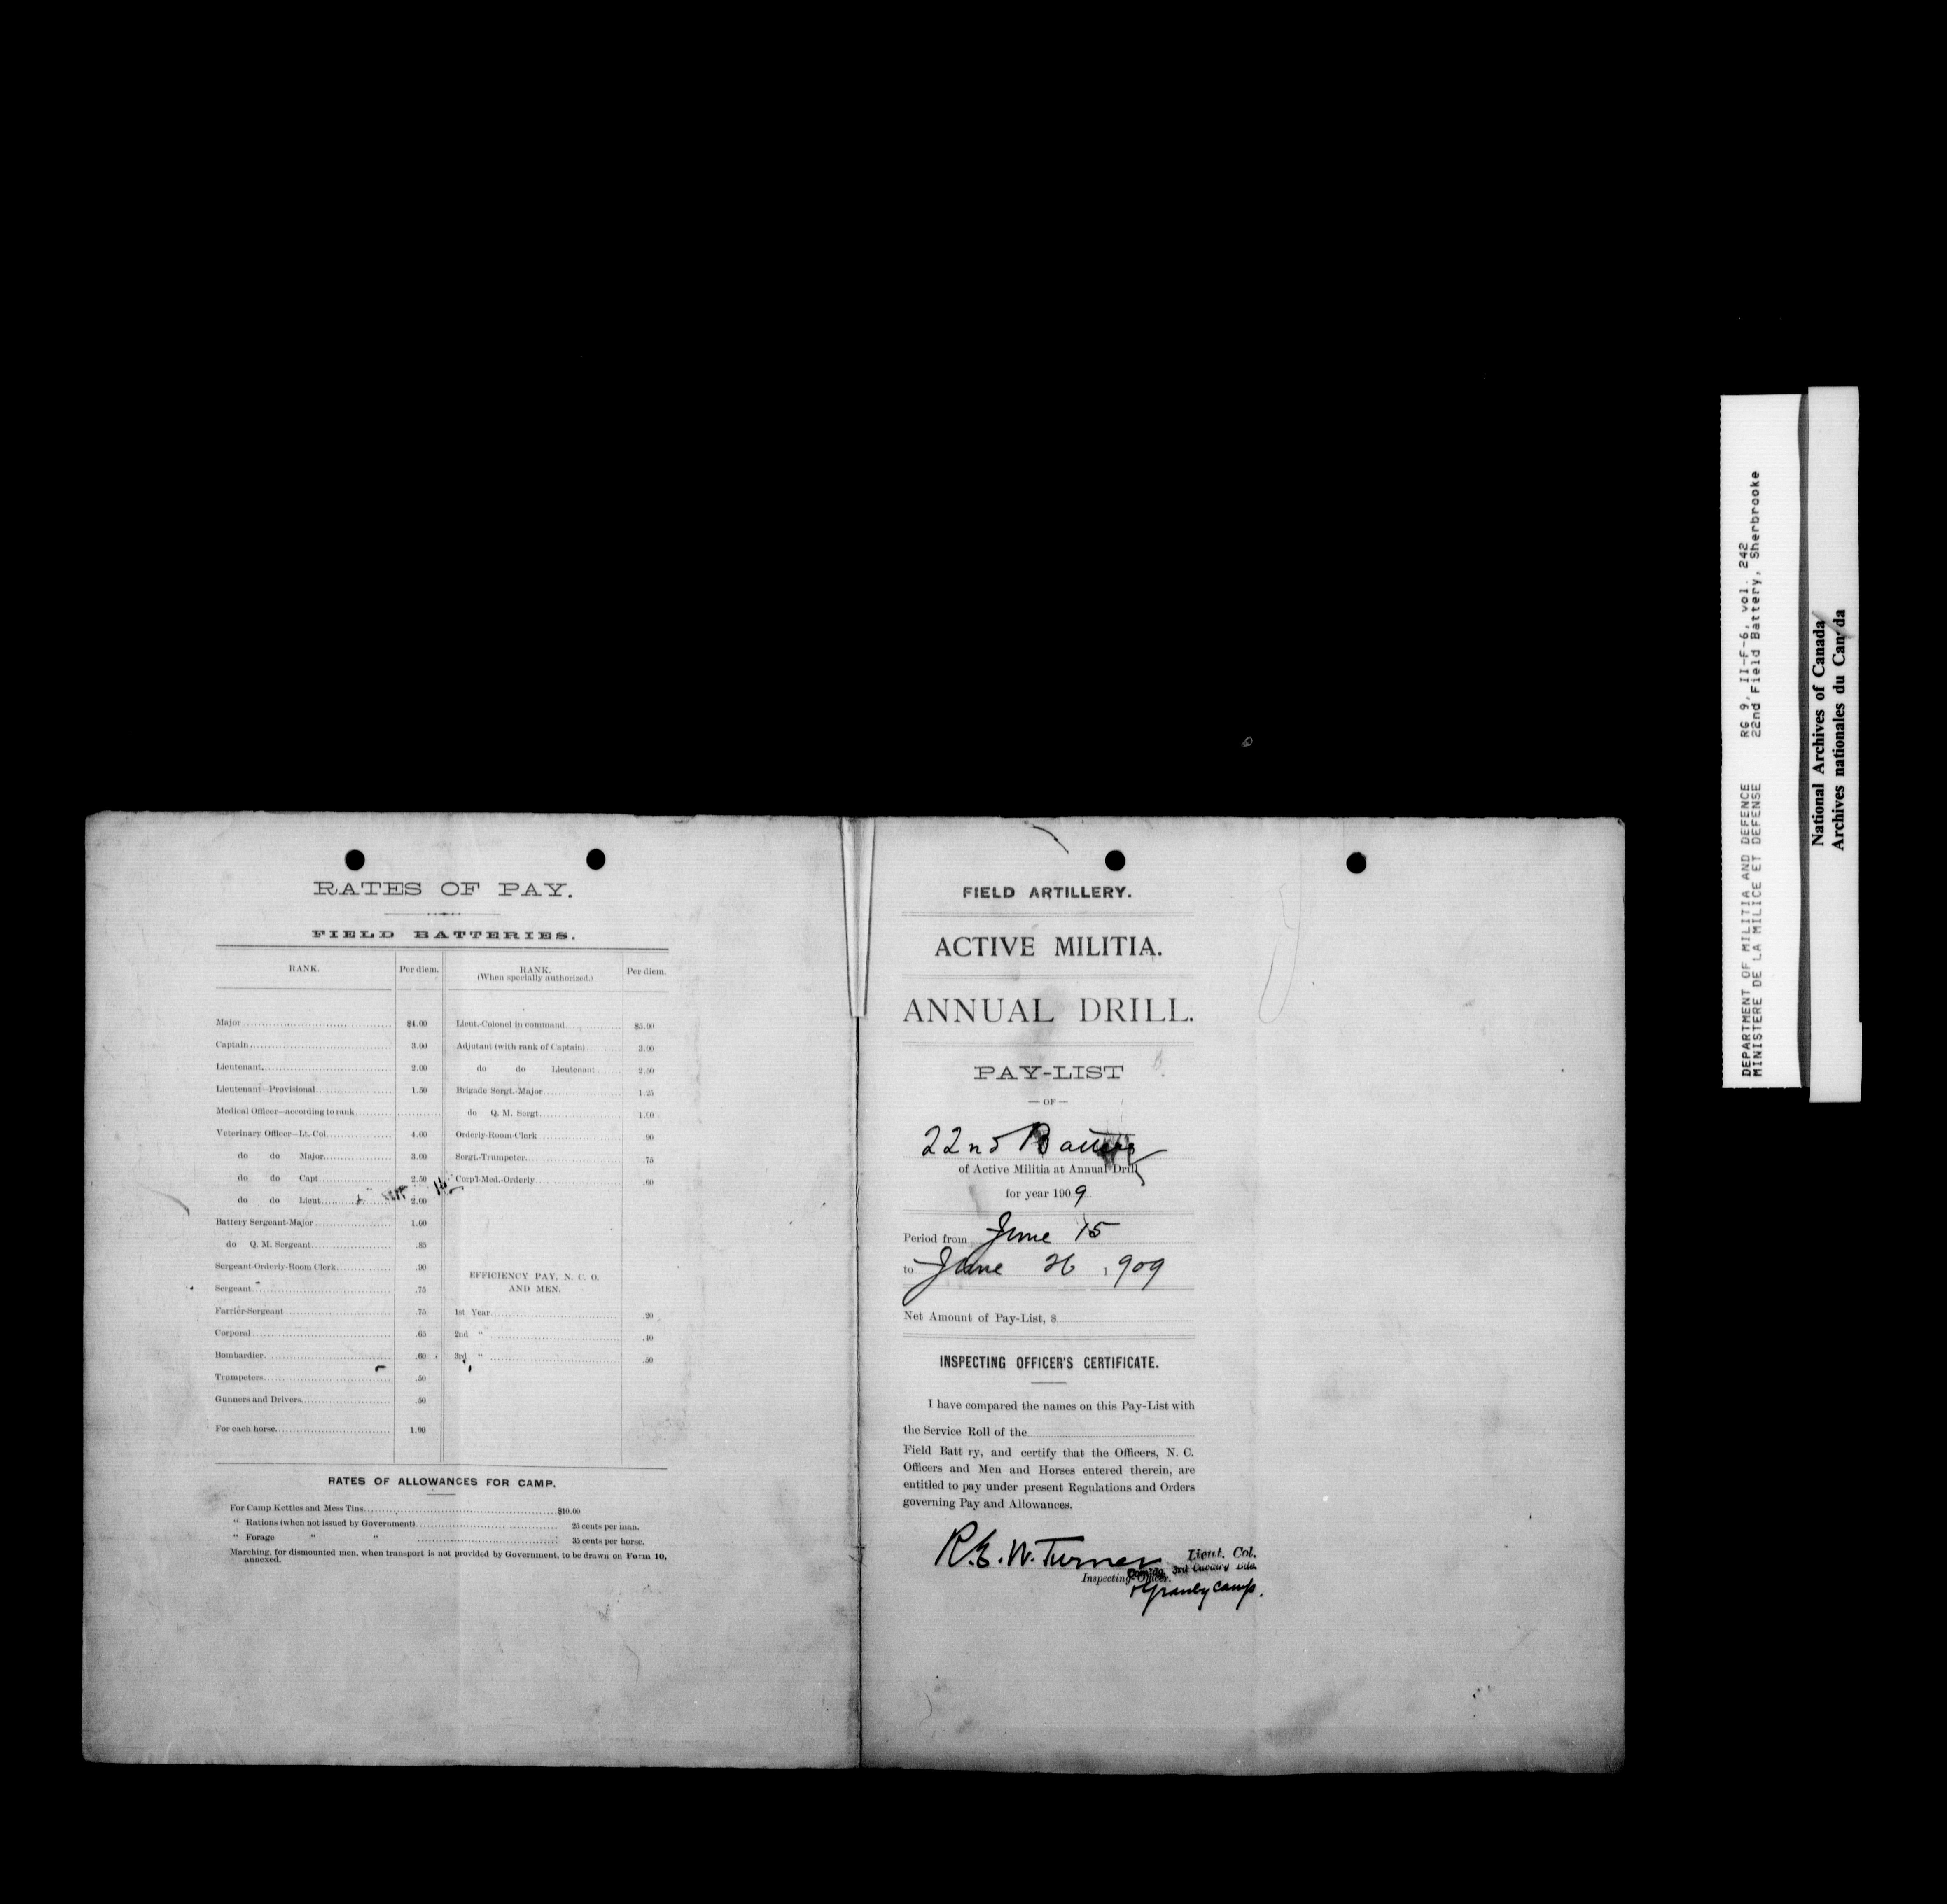 RATES OF PAY.
FIELD BATTERIES.
RANK. Per diem. RANK. (When specially authorized.) Per diem.
Major $4.00 Lieut.-Colonel in command $5.00
Captain 3.00 Adjutant (with rank of Captain) 3.00
Lieutenant 2.00 do do Lieutenant 2.50
Lieutenant—Provisional 1.50 Brigade Sergt.-Major 1.25
Medical Officer—according to rank do Q. M. Sergt. 1.00
Veterinary Officer—Lt. Col. 4.00 Orderly-Room-Clerk .90
do do Major 3.00 Sergt.-Trumpeter .75
do do Capt. 2.50 Corp'l-Med.-Orderly .60
do do Lieut. 2.00
Battery Sergeant-Major 1.00
do Q. M. Sergeant .85
Sergeant-Orderly-Room Clerk .90
Sergeant .75
Farrier-Sergeant .75
Corporal .65
Bombardier .60
Trumpeters .50
Gunners and Drivers .50
For each horse 1.00
EFFICIENCY PAY, N. C. O.
AND MEN.
1st Year .20
2nd " .40
3rd " .50
RATES OF ALLOWANCES FOR CAMP.
For Camp Kettles and Mess Tins $10.00
" Rations (when not issued by Government) 25 cents per man.
" Forage " " 35 cents per horse.
Marching, for dismounted men, when transport is not provided by Government, to be drawn on Form 10,
annexed.
FIELD ARTILLERY.
ACTIVE MILITIA.
ANNUAL DRILL.
PAY-LIST
— OF —
22nd Battery
of Active Militia at Annual Drill
for year 1909
Period from June 15
to June 26 1909
Net Amount of Pay-List, $
INSPECTING OFFICER'S CERTIFICATE.
I have compared the names on this Pay-List with
the Service Roll of the
Field Batt ry, and certify that the Officers, N. C.
Officers and Men and Horses entered therein, are
entitled to pay under present Regulations and Orders
governing Pay and Allowances.
R.E.W. Turner Lieut. Col.
Comdg. 3rd Cavalry Bde.
Inspecting Officer.
Granby Camp.
DEPARTMENT OF MILITIA AND DEFENCE RG 9, II-F-6, vol. 242
MINISTERE DE LA MILICE ET DEFENSE 22nd Field Battery, Sherbrooke
National Archives of Canada
Archives nationales du Canada